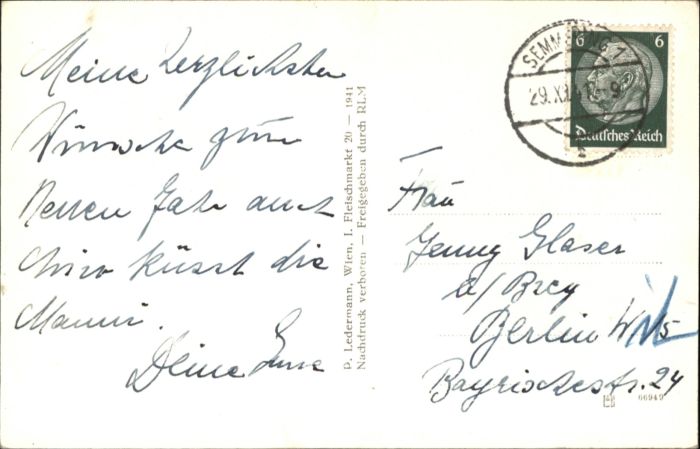 Meine herzlichsten
Wünsche zum
Neuen Jahr auch
küsst die
Mammi.
Deine
P. Ledermann, Wien, I. Fleischmarkt 20 — 1941
Nachdruck verboten — Freigegeben durch RLM
SEMMERING 1
29.XII.41-9
6 6
Deutsches Reich
Frau
Jenny Glaser
b/ Brey
Berlin W 15
Bayrischestr. 24
66949